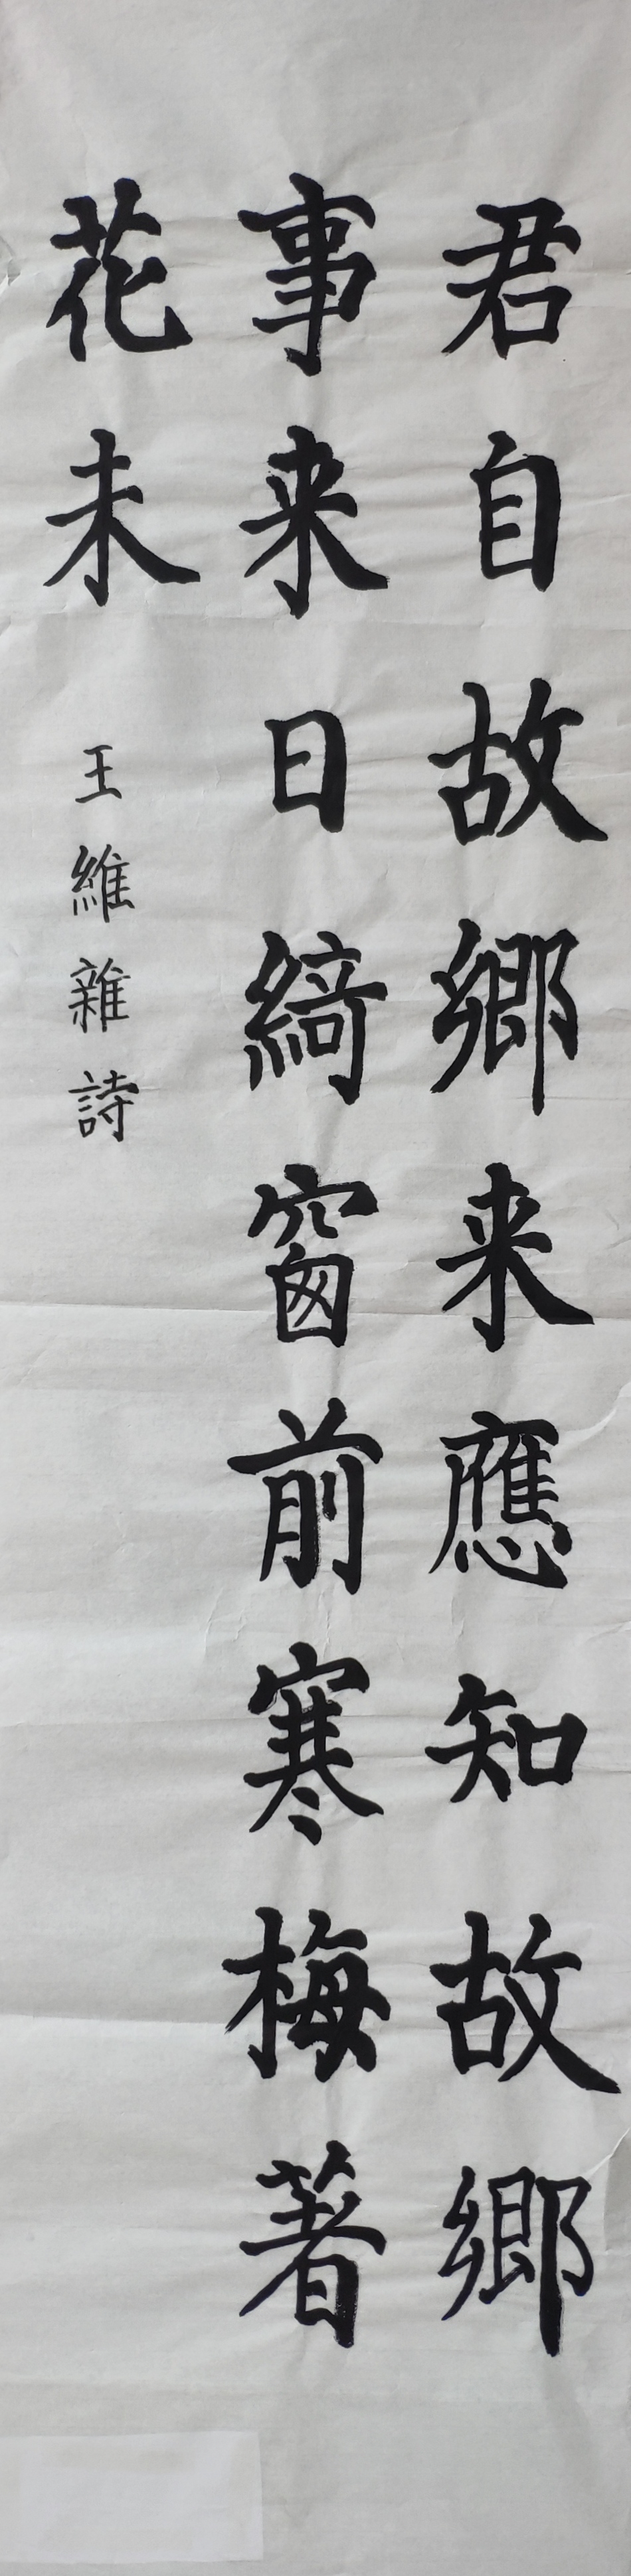 君自故鄉来應知故鄉
事来日綺窗前寒梅著
花未
王維雜詩